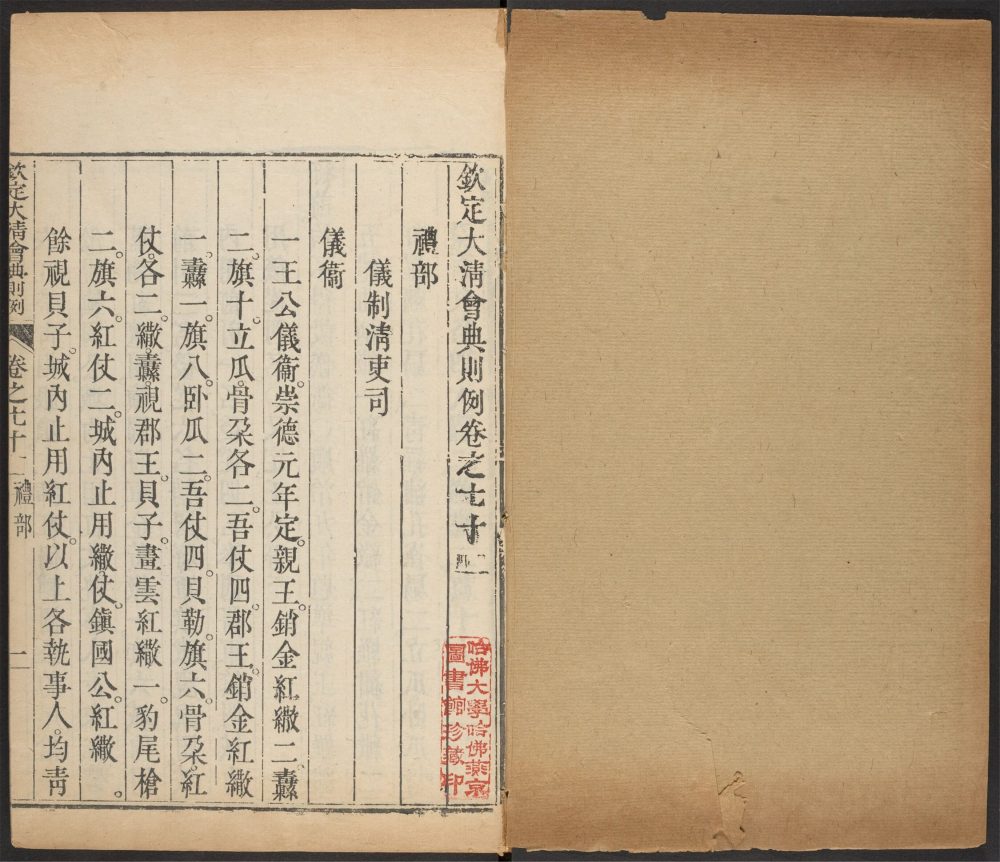 欽定大淸會典則例卷之七十
禮部
儀制淸吏司
儀衞
一王公儀衞。崇德元年定。親王。銷金紅繖二。纛
二。旗十。立瓜。骨朶各二。吾仗四。郡王。銷金紅繖
一。纛一。旗八。卧瓜二。吾仗四。貝勒。旗六。骨朶紅
仗。各二。繖。纛。視郡王。貝子。畫雲紅繖一。豹尾槍
二。旗六。紅仗二。城內止用繖。仗。鎭國公。紅繖
餘視貝子。城內止用紅仗。以上各執事人。均靑
欽定大淸會典則例
卷之七十
禮部
一
哈佛大學哈佛燕京
圖書館珍藏印